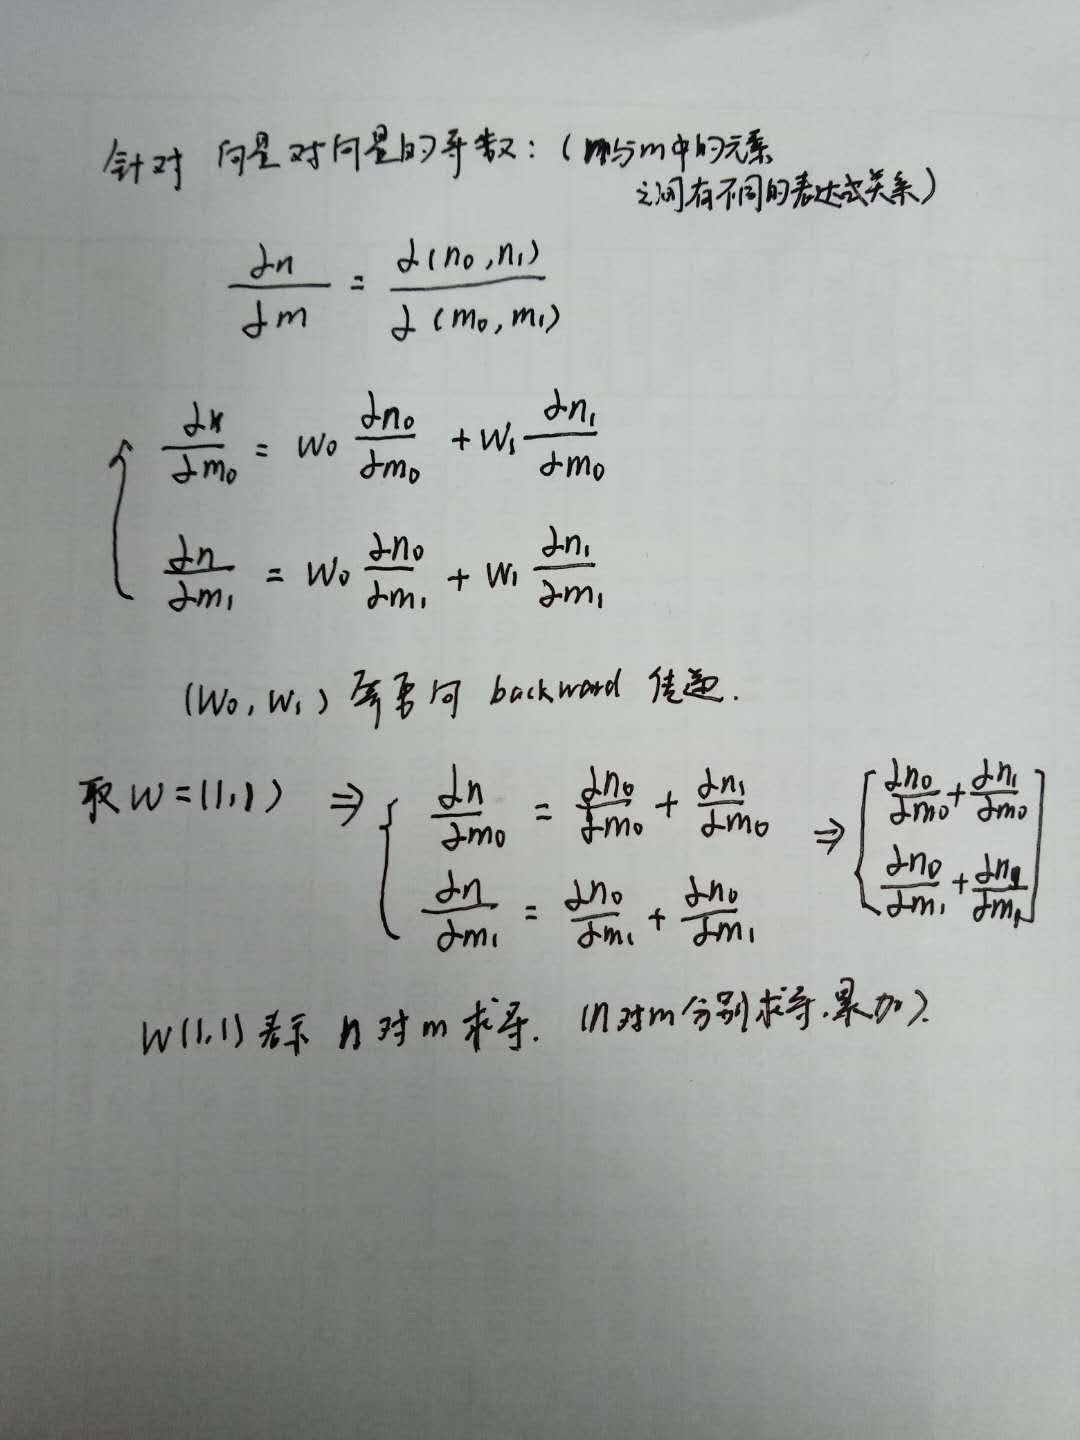 针对 向量对向量的导数：(n与m中的元素
之间有不同的表达式关系)
∂n/∂m = ∂(n₀,n₁)/∂(m₀,m₁)
∂n/∂m₀ = W₀ ∂n₀/∂m₀ + W₁ ∂n₁/∂m₀
∂n/∂m₁ = W₀ ∂n₀/∂m₁ + W₁ ∂n₁/∂m₁
(W₀, W₁) 需要向 backward 传递.
取 W = (1,1) ⇒ { ∂n/∂m₀ = ∂n₀/∂m₀ + ∂n₁/∂m₀ ⇒ [ ∂n₀/∂m₀ + ∂n₁/∂m₀
∂n/∂m₁ = ∂n₀/∂m₁ + ∂n₀/∂m₁ ∂n₀/∂m₁ + ∂n₁/∂m₁ ]
W(1,1) 表示 n 对 m 求导. (n对m分别求导.累加).